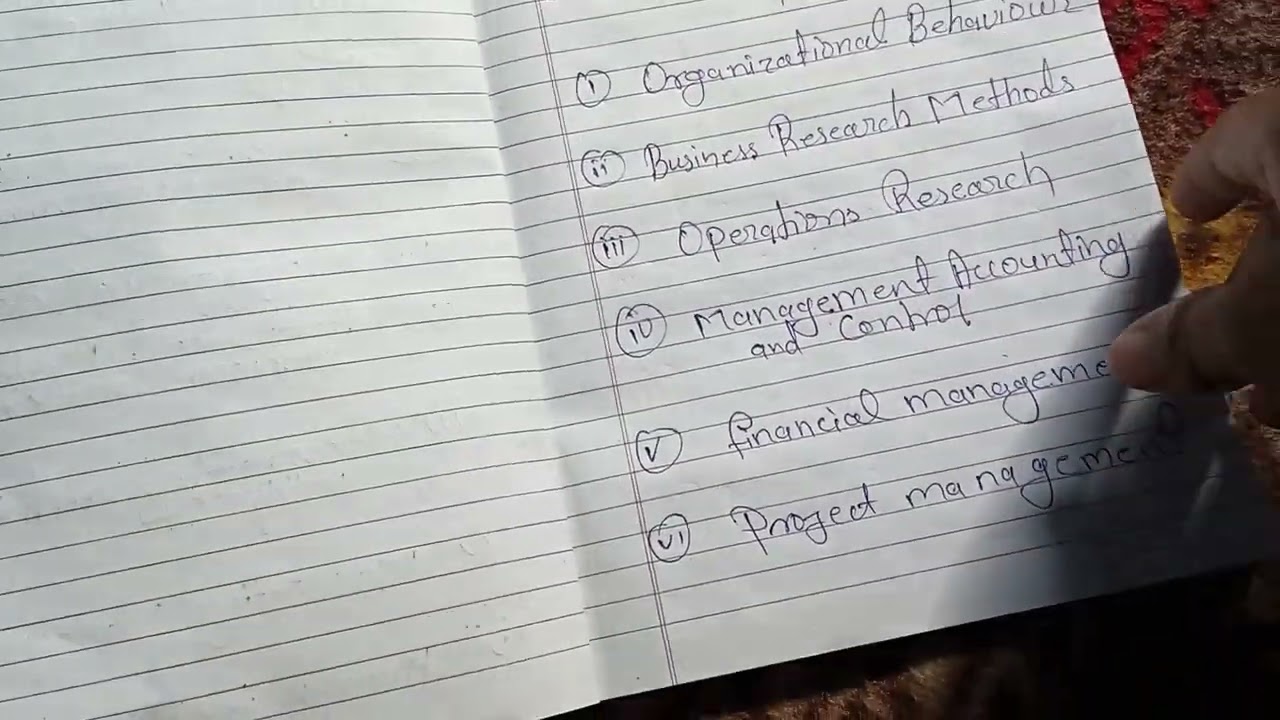 (i) Organizational Behaviour
(ii) Business Research Methods
(iii) Operations Research
(iv) Management Accounting
and Control
(v) financial manageme
(vi) Project management